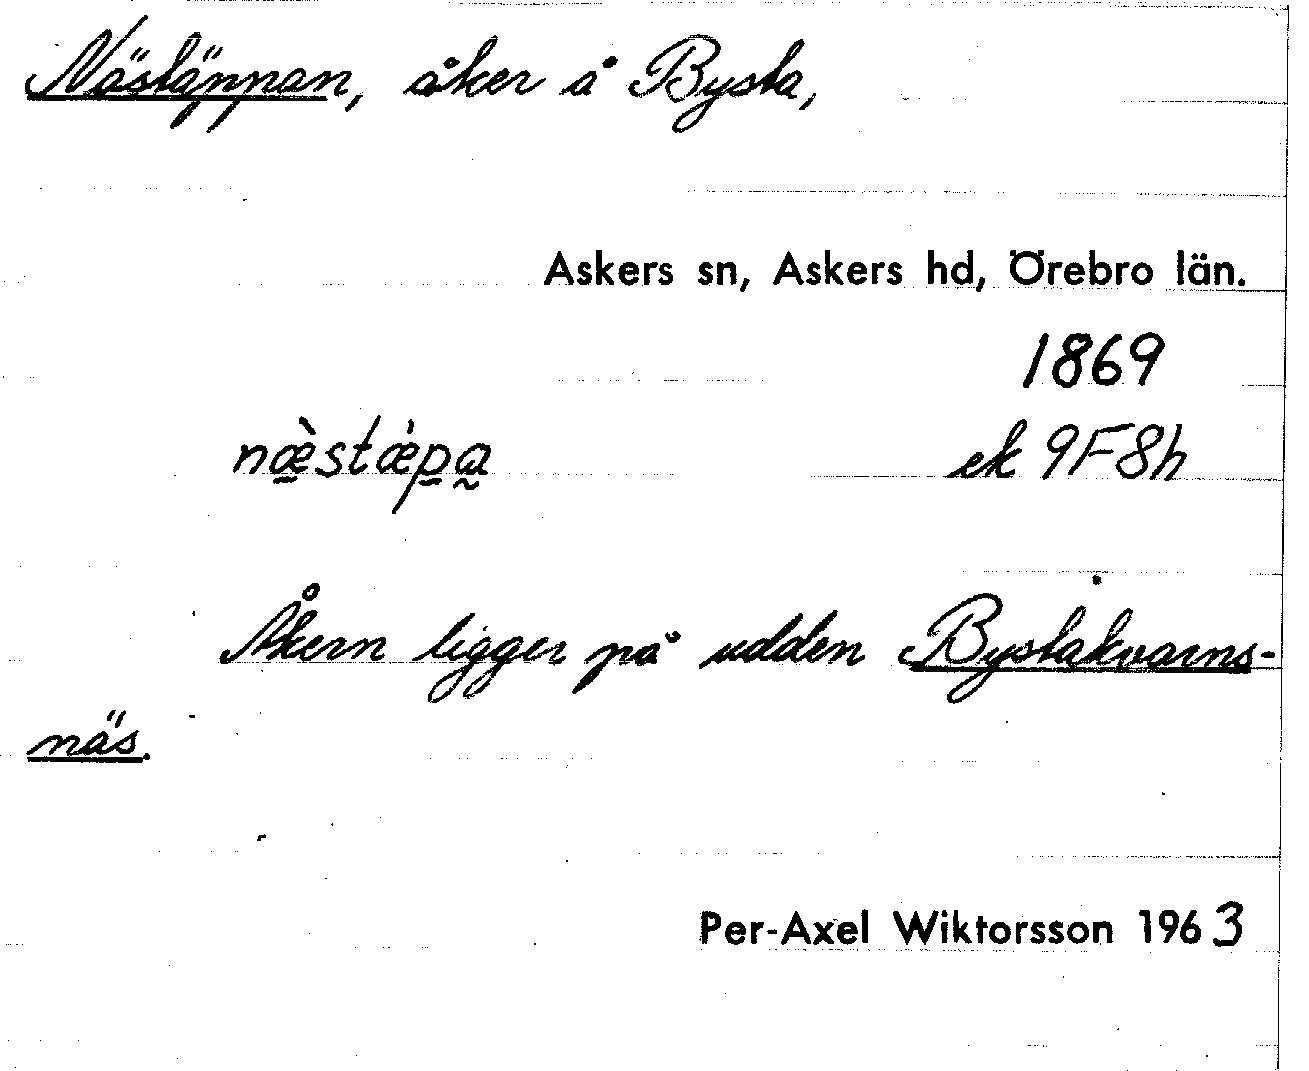 Nästäppan, åker å Bysta,
Askers sn, Askers hd, Örebro län.
1869
næ̀stæ̀pa ek 9F8h
Åkern ligger på udden Bystakvarns-
näs.
Per-Axel Wiktorsson 1963